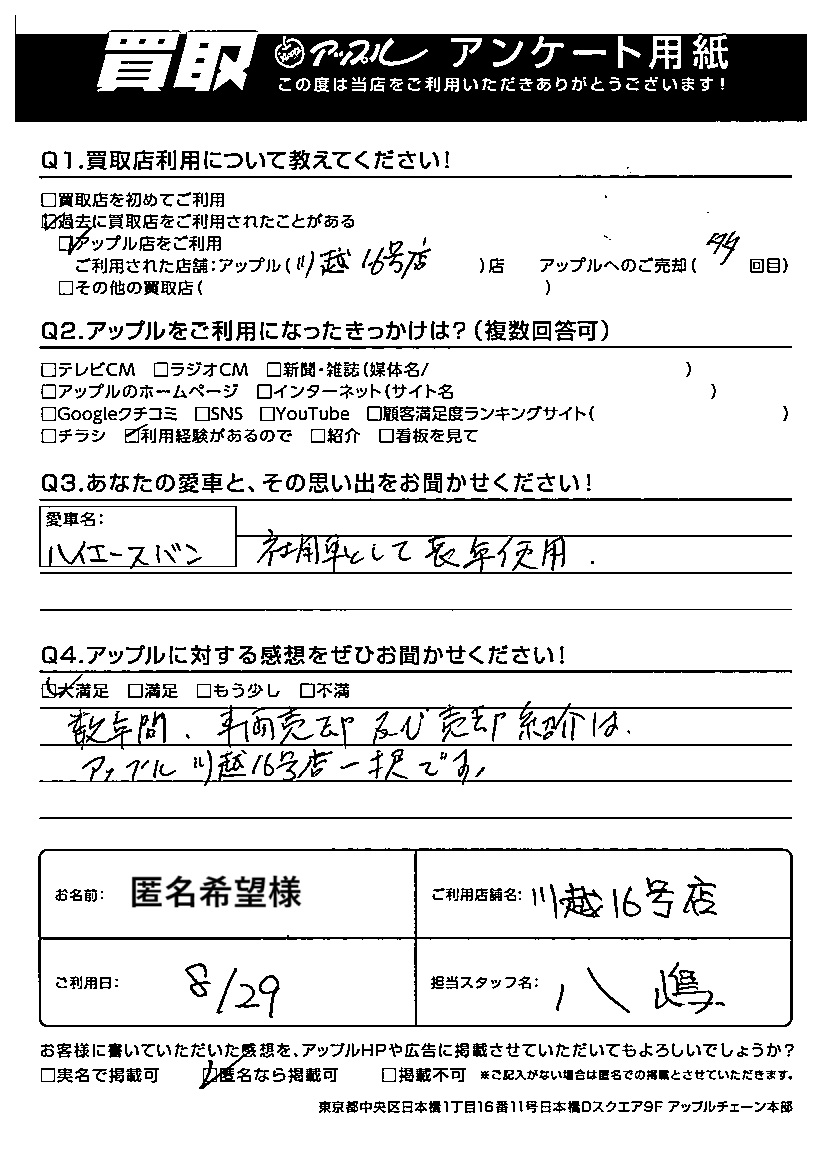 買取 アップル アンケート用紙
この度は当店をご利用いただきありがとうございます!
Q1.買取店利用について教えてください!
□買取店を初めてご利用
☑過去に買取店をご利用されたことがある
☑アップル店をご利用
ご利用された店舗:アップル(川越16号店 )店 アップルへのご売却( 回目)
□その他の買取店( )
Q2.アップルをご利用になったきっかけは?(複数回答可)
□テレビCM □ラジオCM □新聞・雑誌(媒体名/ )
□アップルのホームページ □インターネット(サイト名 )
□Googleクチコミ □SNS □YouTube □顧客満足度ランキングサイト( )
□チラシ ☑利用経験があるので □紹介 □看板を見て
Q3.あなたの愛車と、その思い出をお聞かせください!
愛車名:
ハイエースバン 社用車として長年使用.
Q4.アップルに対する感想をぜひお聞かせください!
☑大満足 □満足 □もう少し □不満
数年間、車両売却及び売却紹介は、
アップル川越16号店一択です。
お名前: 匿名希望様 ご利用店舗名: 川越16号店
ご利用日: 8/29 担当スタッフ名: 八嶋
お客様に書いていただいた感想を、アップルHPや広告に掲載させていただいてもよろしいでしょうか?
□実名で掲載可 ☑匿名なら掲載可 □掲載不可 ※ご記入がない場合は匿名での掲載とさせていただきます。
東京都中央区日本橋1丁目16番11号日本橋Dスクエア9F アップルチェーン本部